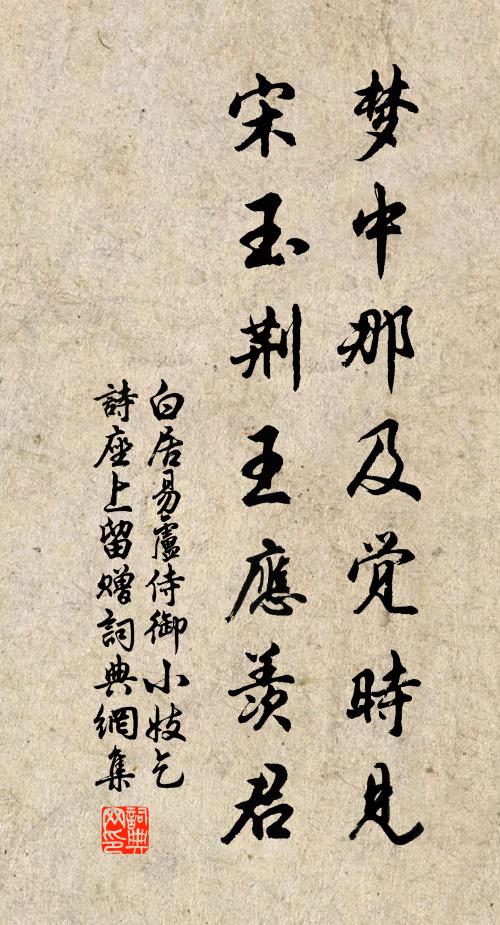 梦中那及觉時見
宋玉荆王應羡君
白居易盧侍御小妓乞
詩座上留赠詞典網集
詞典網印